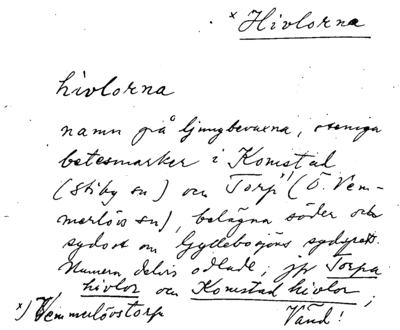 × Hivlorna
hivlorna
namn på ljungbevuxna, steniga
betesmarker i Komstad
(Stiby sn) och Torp× (Ö. Vem-
merlövs sn), belägna söder och
sydost om Gyllebosjöns sydspets.
Numera delvis odlade; jp Torpa
hivlor och Komstad hivlor;
×) Vemmerlövstorp Vänd!